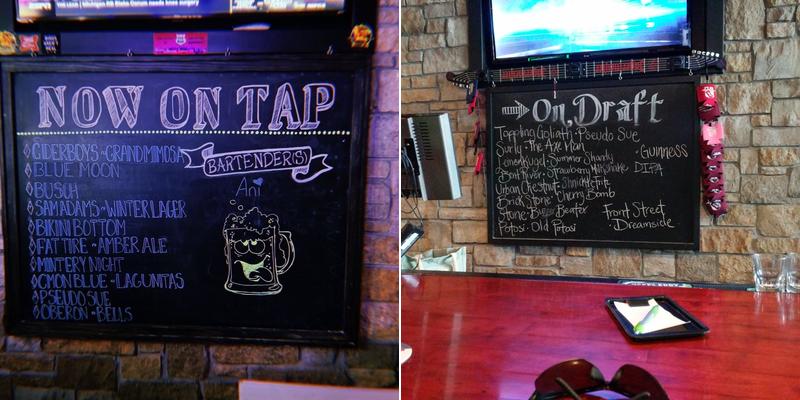 Michigan RB Blake Corum needs knee surgery
NOW ON TAP
BARTENDER(S)
Ani
CIDERBOYS - GRAND MIMOSA
BLUE MOON
BUSCH
SAM ADAMS - WINTER LAGER
BIKINI BOTTOM
FAT TIRE - AMBER ALE
MINTERY NIGHT
C'MON BLUE - LAGUNITAS
PSEUDO SUE
OBERON - BELLS
On Draft
Toppling Goliath - Pseudo Sue
Surly - The Axe Man
Leinenkugel - Summer Shandy
Bent River - Strawberry Milkshake
Urban Chestnut -
Brick Stone - Cherry Bomb
Stone - Buenaveza Beater
Potosi - Old Potosi
- Guinness
DIPA
Front Street
- Dreamside